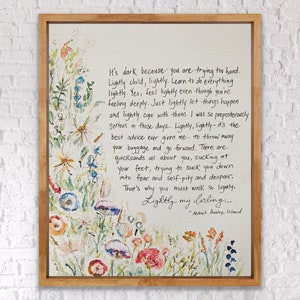 It's dark because you are trying too hard.
Lightly child, lightly. Learn to do everything
lightly. Yes, feel lightly even though you're
feeling deeply. Just lightly let things happen
and lightly cope with them. I was so preposterously
serious in those days. Lightly, lightly - it's the
best advice ever given me... to throw away
your baggage and go forward. There are
quicksands all about you, sucking at
your feet, trying to suck you down
into fear and self-pity and despair.
That's why you must walk so lightly.
Lightly my darling...
- Aldous Huxley, Island